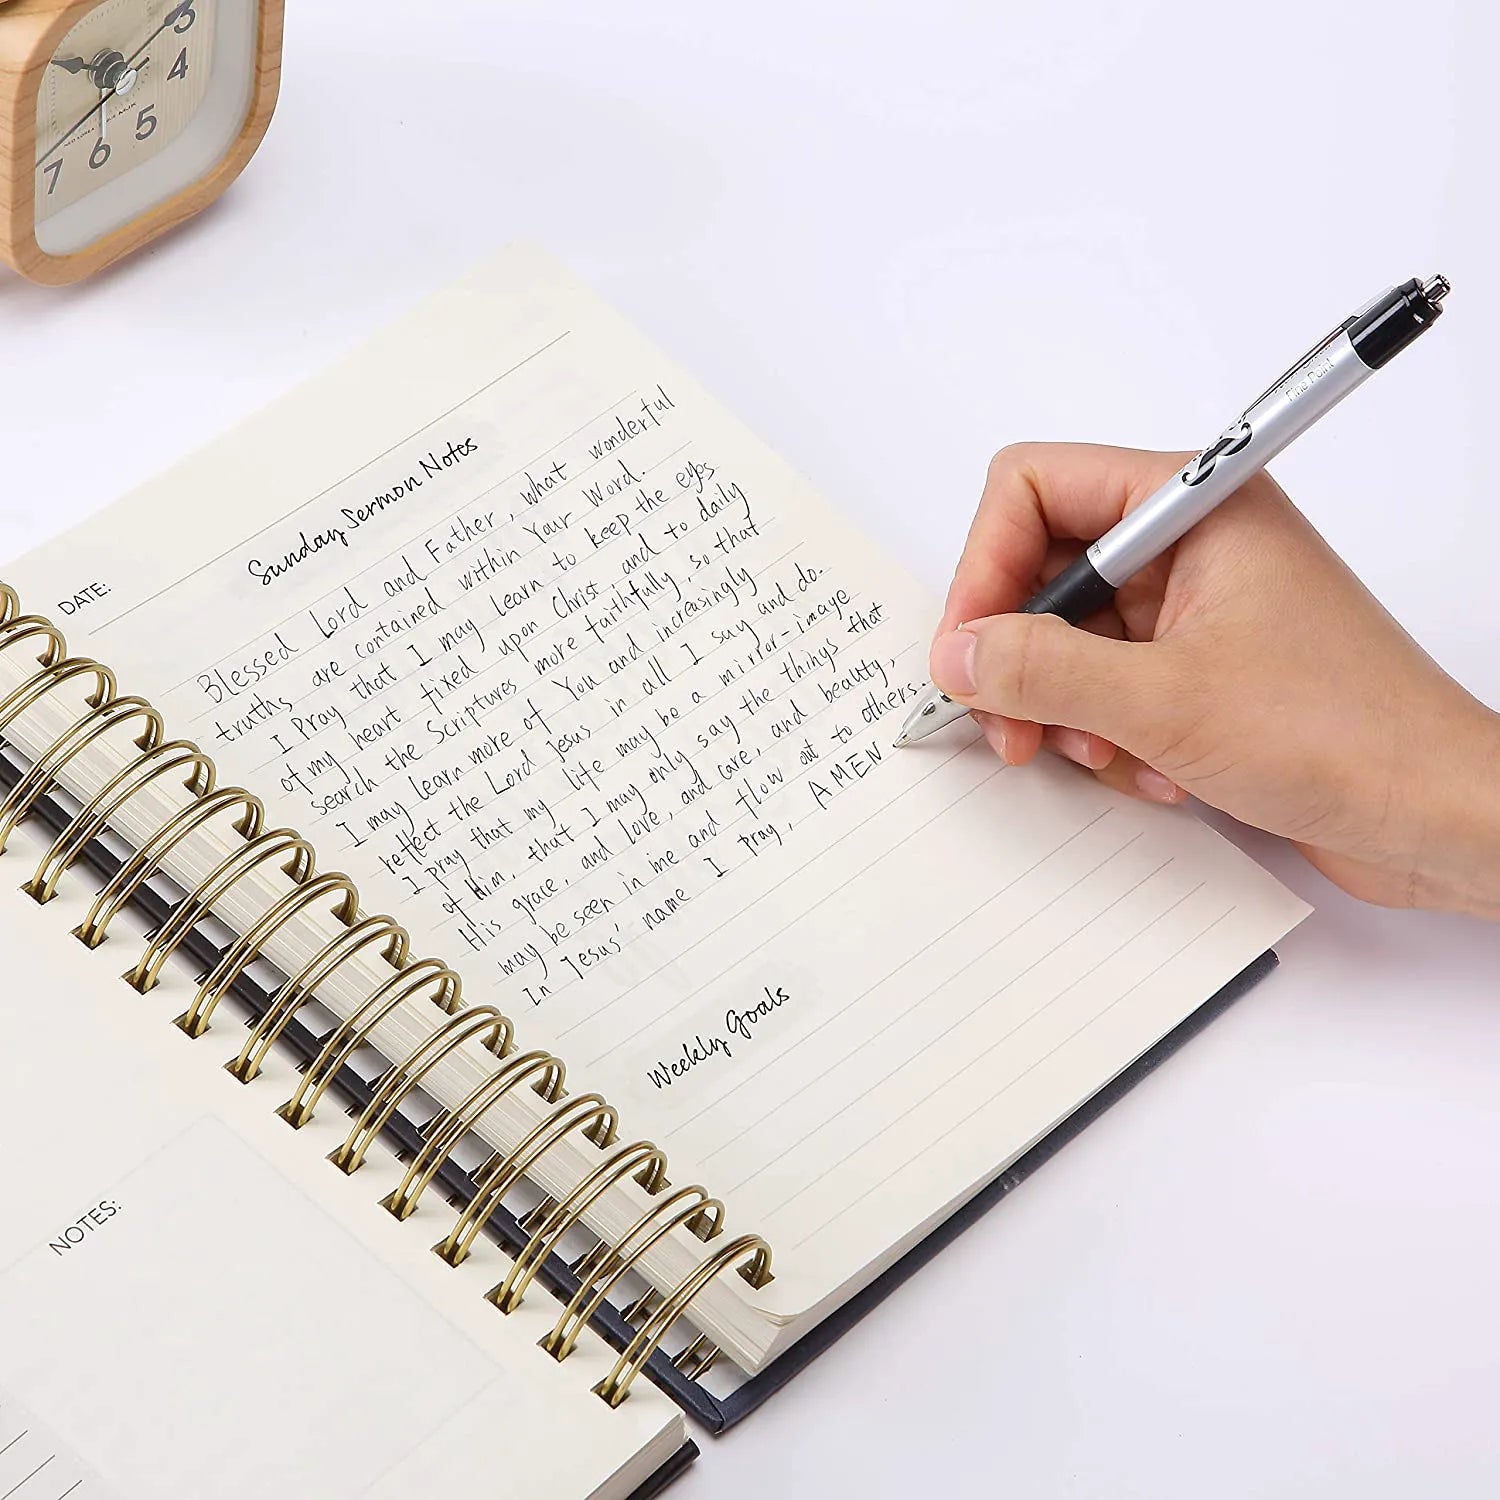 3
4
5
6
7
Fine Point
DATE:
Sunday Sermon Notes
Blessed Lord and Father, what wonderful
truths are contained within Your Word.
I Pray that I may learn to keep the eyes
of my heart fixed upon Christ, and to daily
search the Scriptures more faithfully, so that
I may learn more of You and increasingly
reflect the Lord Jesus in all I say and do.
I pray that my life may be a mirror-image
of Him, that I may only say the things that
His grace, and love, and care, and beauty,
may be seen in me and flow out to others.
In Jesus' name I pray, AMEN
Weekly Goals
NOTES: